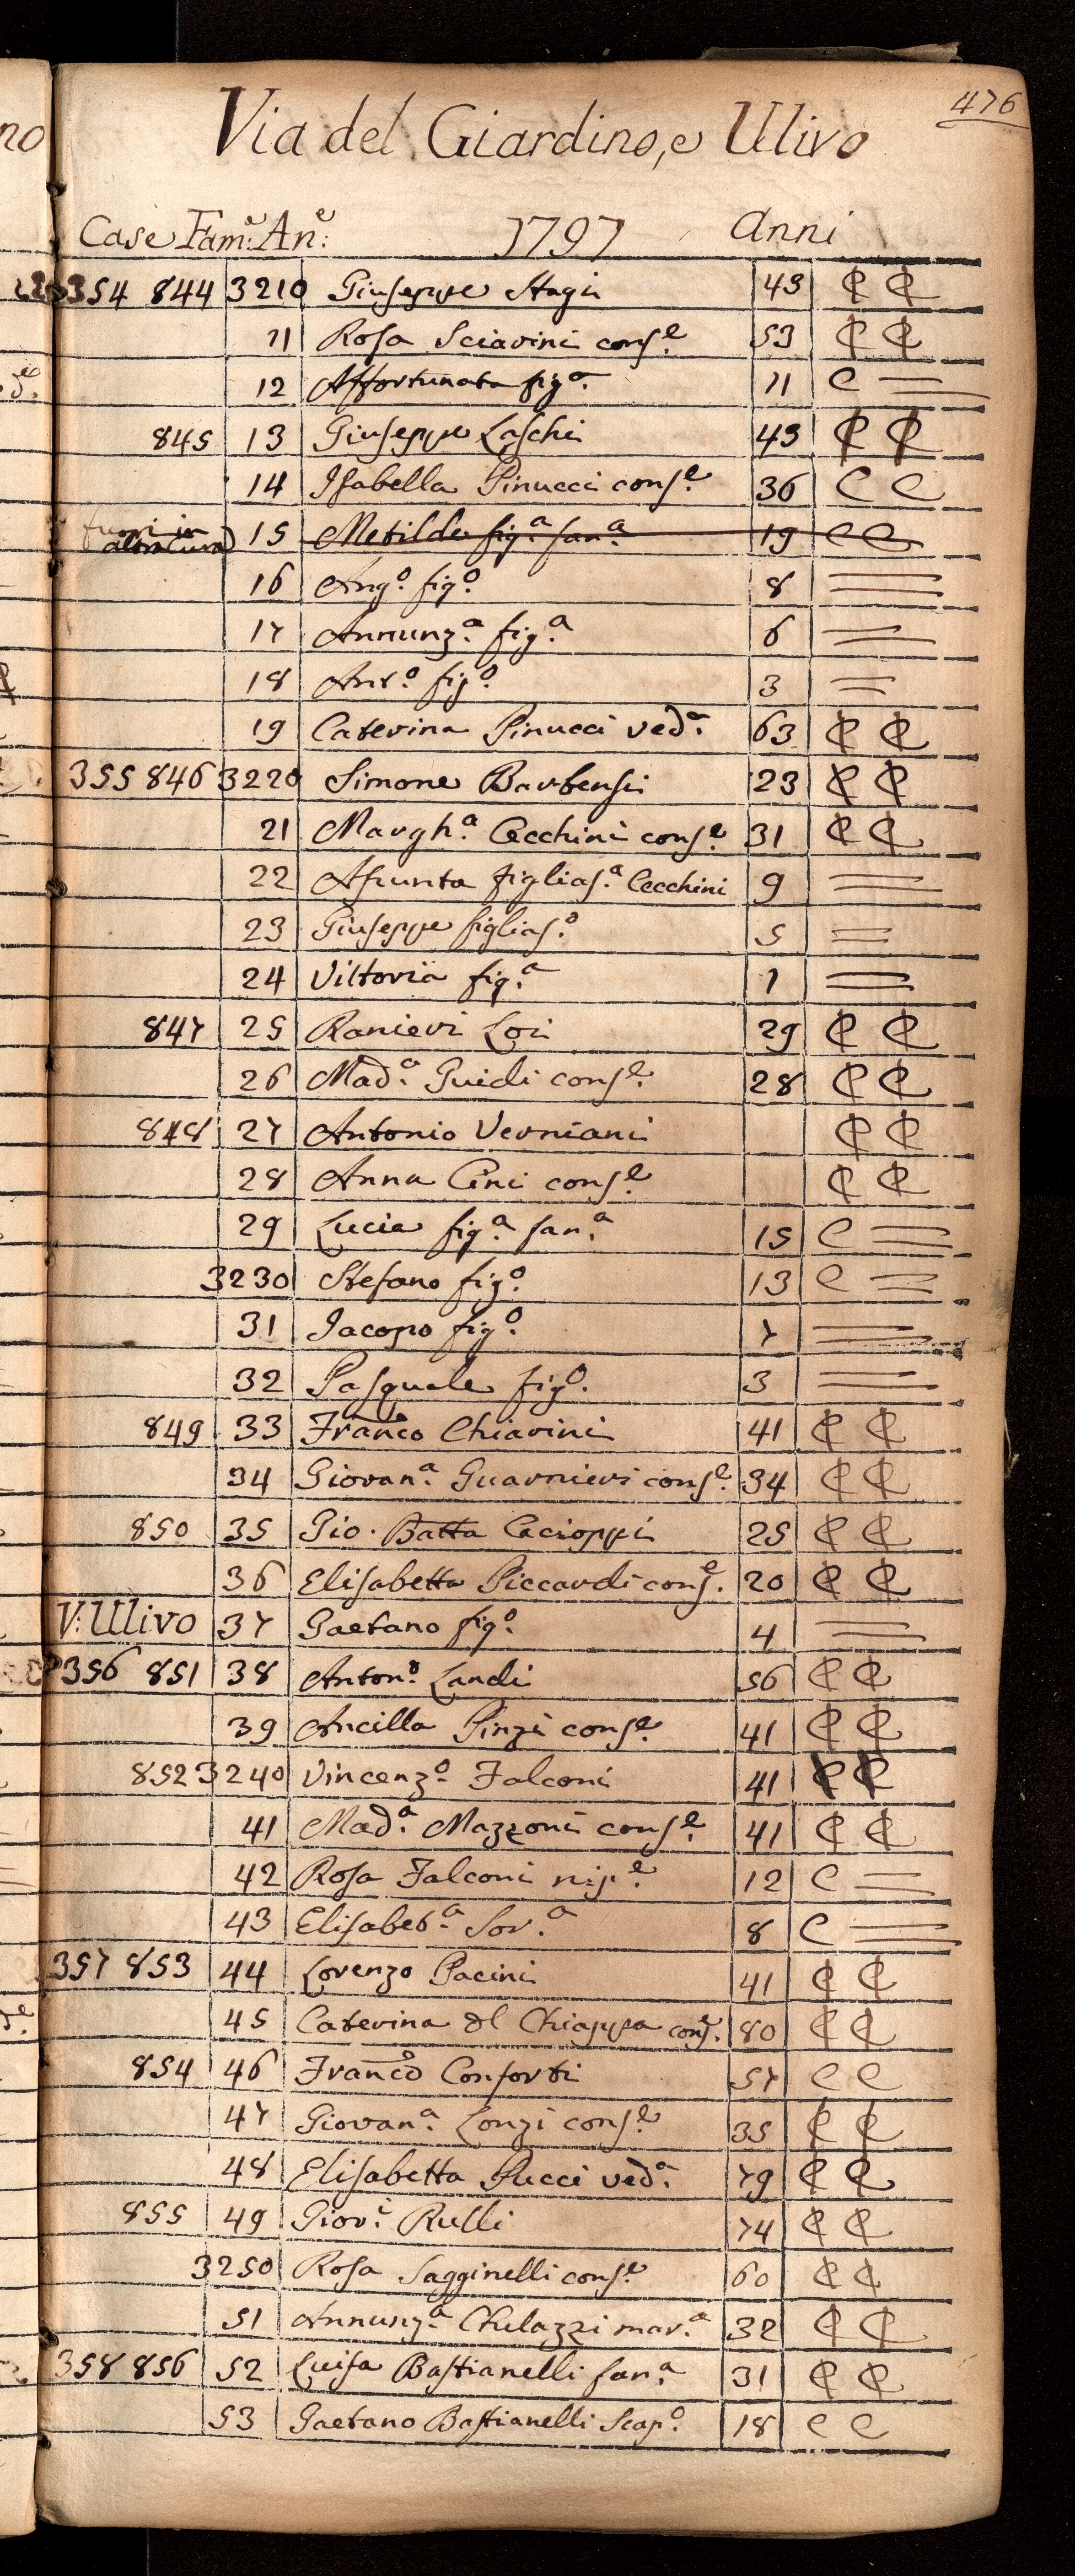 476
Via del Giardino, e Ulivo
Case Fam:e An:e 1797 Anni
354 844 3210 Giuseppe Stagi 43 ₵ ₵
11 Rosa Sciavini cons.e 53 ₵ ₵
12 Affortunata fig.a 11 C =
845 13 Giuseppe Laschi 43 ₵ ₵
14 Isabella Pinucci cons.e 36 C C
fuori in altra Cura 15 Metilde fig.a fan.a 19 C C
16 Ang.o fig.o 8 =
17 Annunz.a fig.a 6 =
18 Ant.o fig.o 3 =
19 Caterina Pinucci ved.a 63 ₵ ₵
355 846 3220 Simone Barbensi 23 ₵ ₵
21 Margh.a Cecchini cons.e 31 ₵ ₵
22 Asunta figlias.a Cecchini 9 =
23 Giuseppe figlias.o 5 =
24 Vittoria fig.a 1 =
847 25 Ranieri Loi 29 ₵ ₵
26 Mad.a Guidi cons.e 28 ₵ ₵
848 27 Antonio Verniani ₵ ₵
28 Anna Cini cons.e ₵ ₵
29 Lucia fig.a fan.a 15 C =
3230 Stefano fig.o 13 C =
31 Jacopo fig.o 7 =
32 Pasquale fig.o 3 =
849 33 Fran.co Chiarini 41 ₵ ₵
34 Giovan.a Guarnieri cons.e 34 ₵ ₵
850 35 Gio. Batta Cacioppi 25 ₵ ₵
36 Elisabetta Piccardi cons.e 20 ₵ ₵
V: Ulivo 37 Gaetano fig.o 4 =
356 851 38 Anton.o Landi 56 ₵ ₵
39 Ancilla Pinzi cons.e 41 ₵ ₵
852 3240 Vincenz.o Falconi 41 ₵ ₵
41 Mad.a Mazzoni cons.e 41 ₵ ₵
42 Rosa Falconi nip.e 12 C =
43 Elisabet.a Sor.a 8 C =
357 853 44 Lorenzo Pacini 41 ₵ ₵
45 Caterina del Chiappa cons.e 80 ₵ ₵
854 46 Franc.o Conforti 57 C C
47 Giovan.a Lonzi cons.e 35 ₵ ₵
48 Elisabetta Pucci ved.a 79 ₵ ₵
855 49 Giov.i Rulli 74 ₵ ₵
3250 Rosa Sagginelli cons.e 60 ₵ ₵
51 Annunz.a Chelazzi mar.a 32 ₵ ₵
358 856 52 Luisa Bastianelli fan.a 31 ₵ ₵
53 Gaetano Bastianelli Scap.o 18 C C